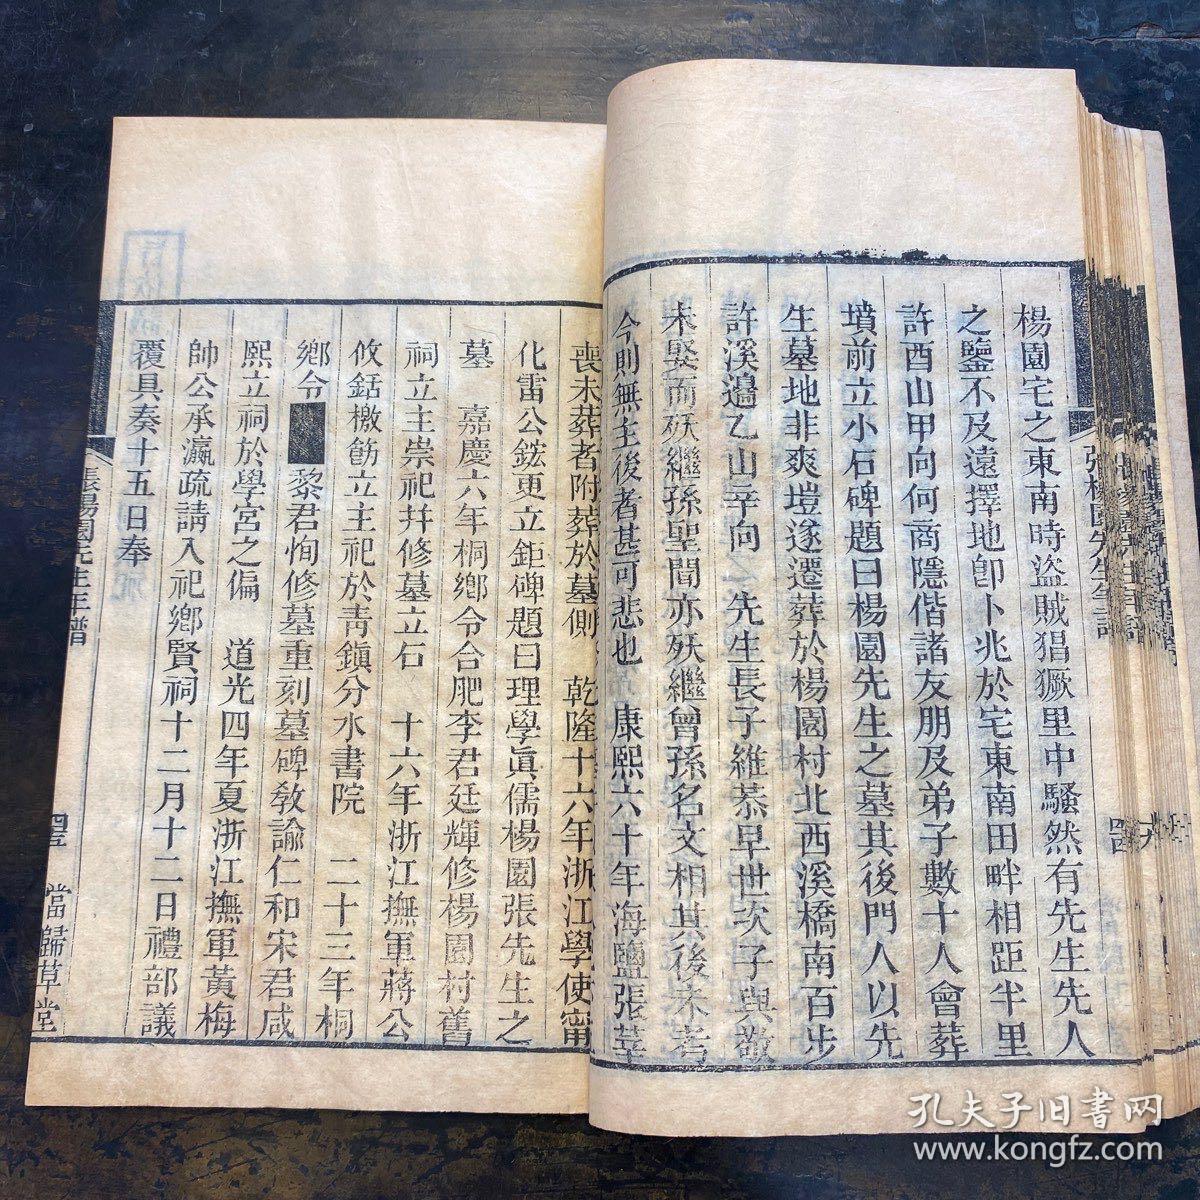 楊園宅之東南時盜賊猖獗里中騷然有先生先人
之鑒不及遠擇地卽卜兆於宅東南田畔相距半里
許酉山甲向何商隱偕諸友朋及弟子數十人會葬
墳前立小石碑題曰楊園先生之墓其後門人以先
生墓地非爽塏遂遷葬於楊園村北西溪橋南百步
許溪邊乙山辛向 先生長子維恭早世次子與敬
未娶而殀繼孫聖聞亦殀繼曾孫名文相其後未考
今則無主後者甚可悲也 康熙六十年海鹽張莘
喪未葬者附葬於墓側 乾隆十六年浙江學使甯
化雷公鋐更立鉅碑題曰理學眞儒楊園張先生之
墓 嘉慶六年桐鄉令合肥李君廷輝修楊園村舊
祠立主崇祀幷修墓立石 十六年浙江撫軍蔣公
攸銛檄飭立主祀於靑鎭分水書院 二十三年桐
鄉令■黎君恂修墓重刻墓碑敎諭仁和宋君咸
熙立祠於學宮之偏 道光四年夏浙江撫軍黃梅
帥公承瀛疏請入祀鄉賢祠十二月十二日禮部議
覆具奏十五日奉
張楊園先生年譜
當歸草堂
孔夫子旧书网
www.kongfz.com